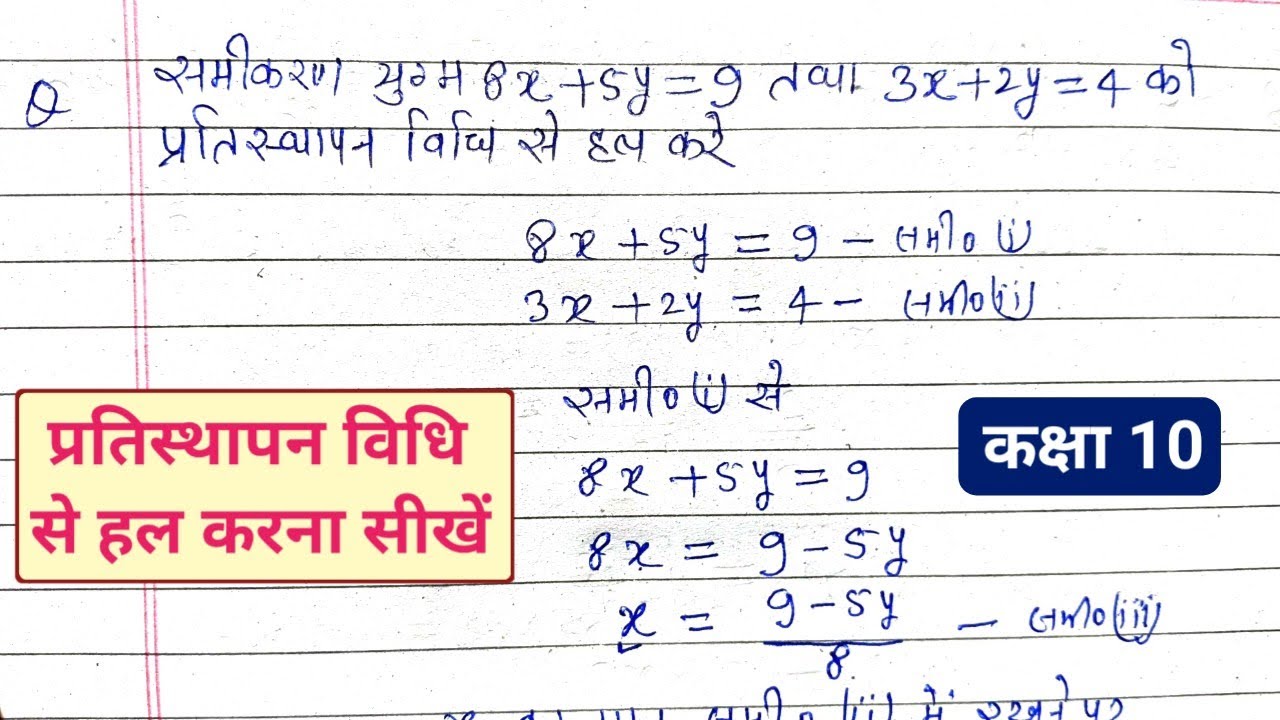 Q समीकरण युग्म 8x+5y=9 तथा 3x+2y=4 को
प्रतिस्थापन विधि से हल करे
8x+5y=9 – समी० (i)
3x+2y=4 – समी०(ii)
समी० (i) से
8x+5y=9
8x = 9-5y
x = 9-5y – समी०(iii)
8
प्रतिस्थापन विधि
से हल करना सीखें
कक्षा 10
मान समी० (ii) में रखने पर